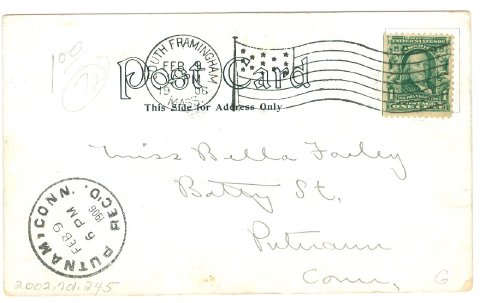 100
SOUTH FRAMINGHAM
FEB 9
1906
MASS.
Post Card
This Side for Address Only
UNITED STATES OF
ONE CENT
Miss Bella Farley
Batey St.
Putnam
Conn.
PUTNAM, CONN. REC'D.
FEB 9
6 PM
1906
2002.70.245
G